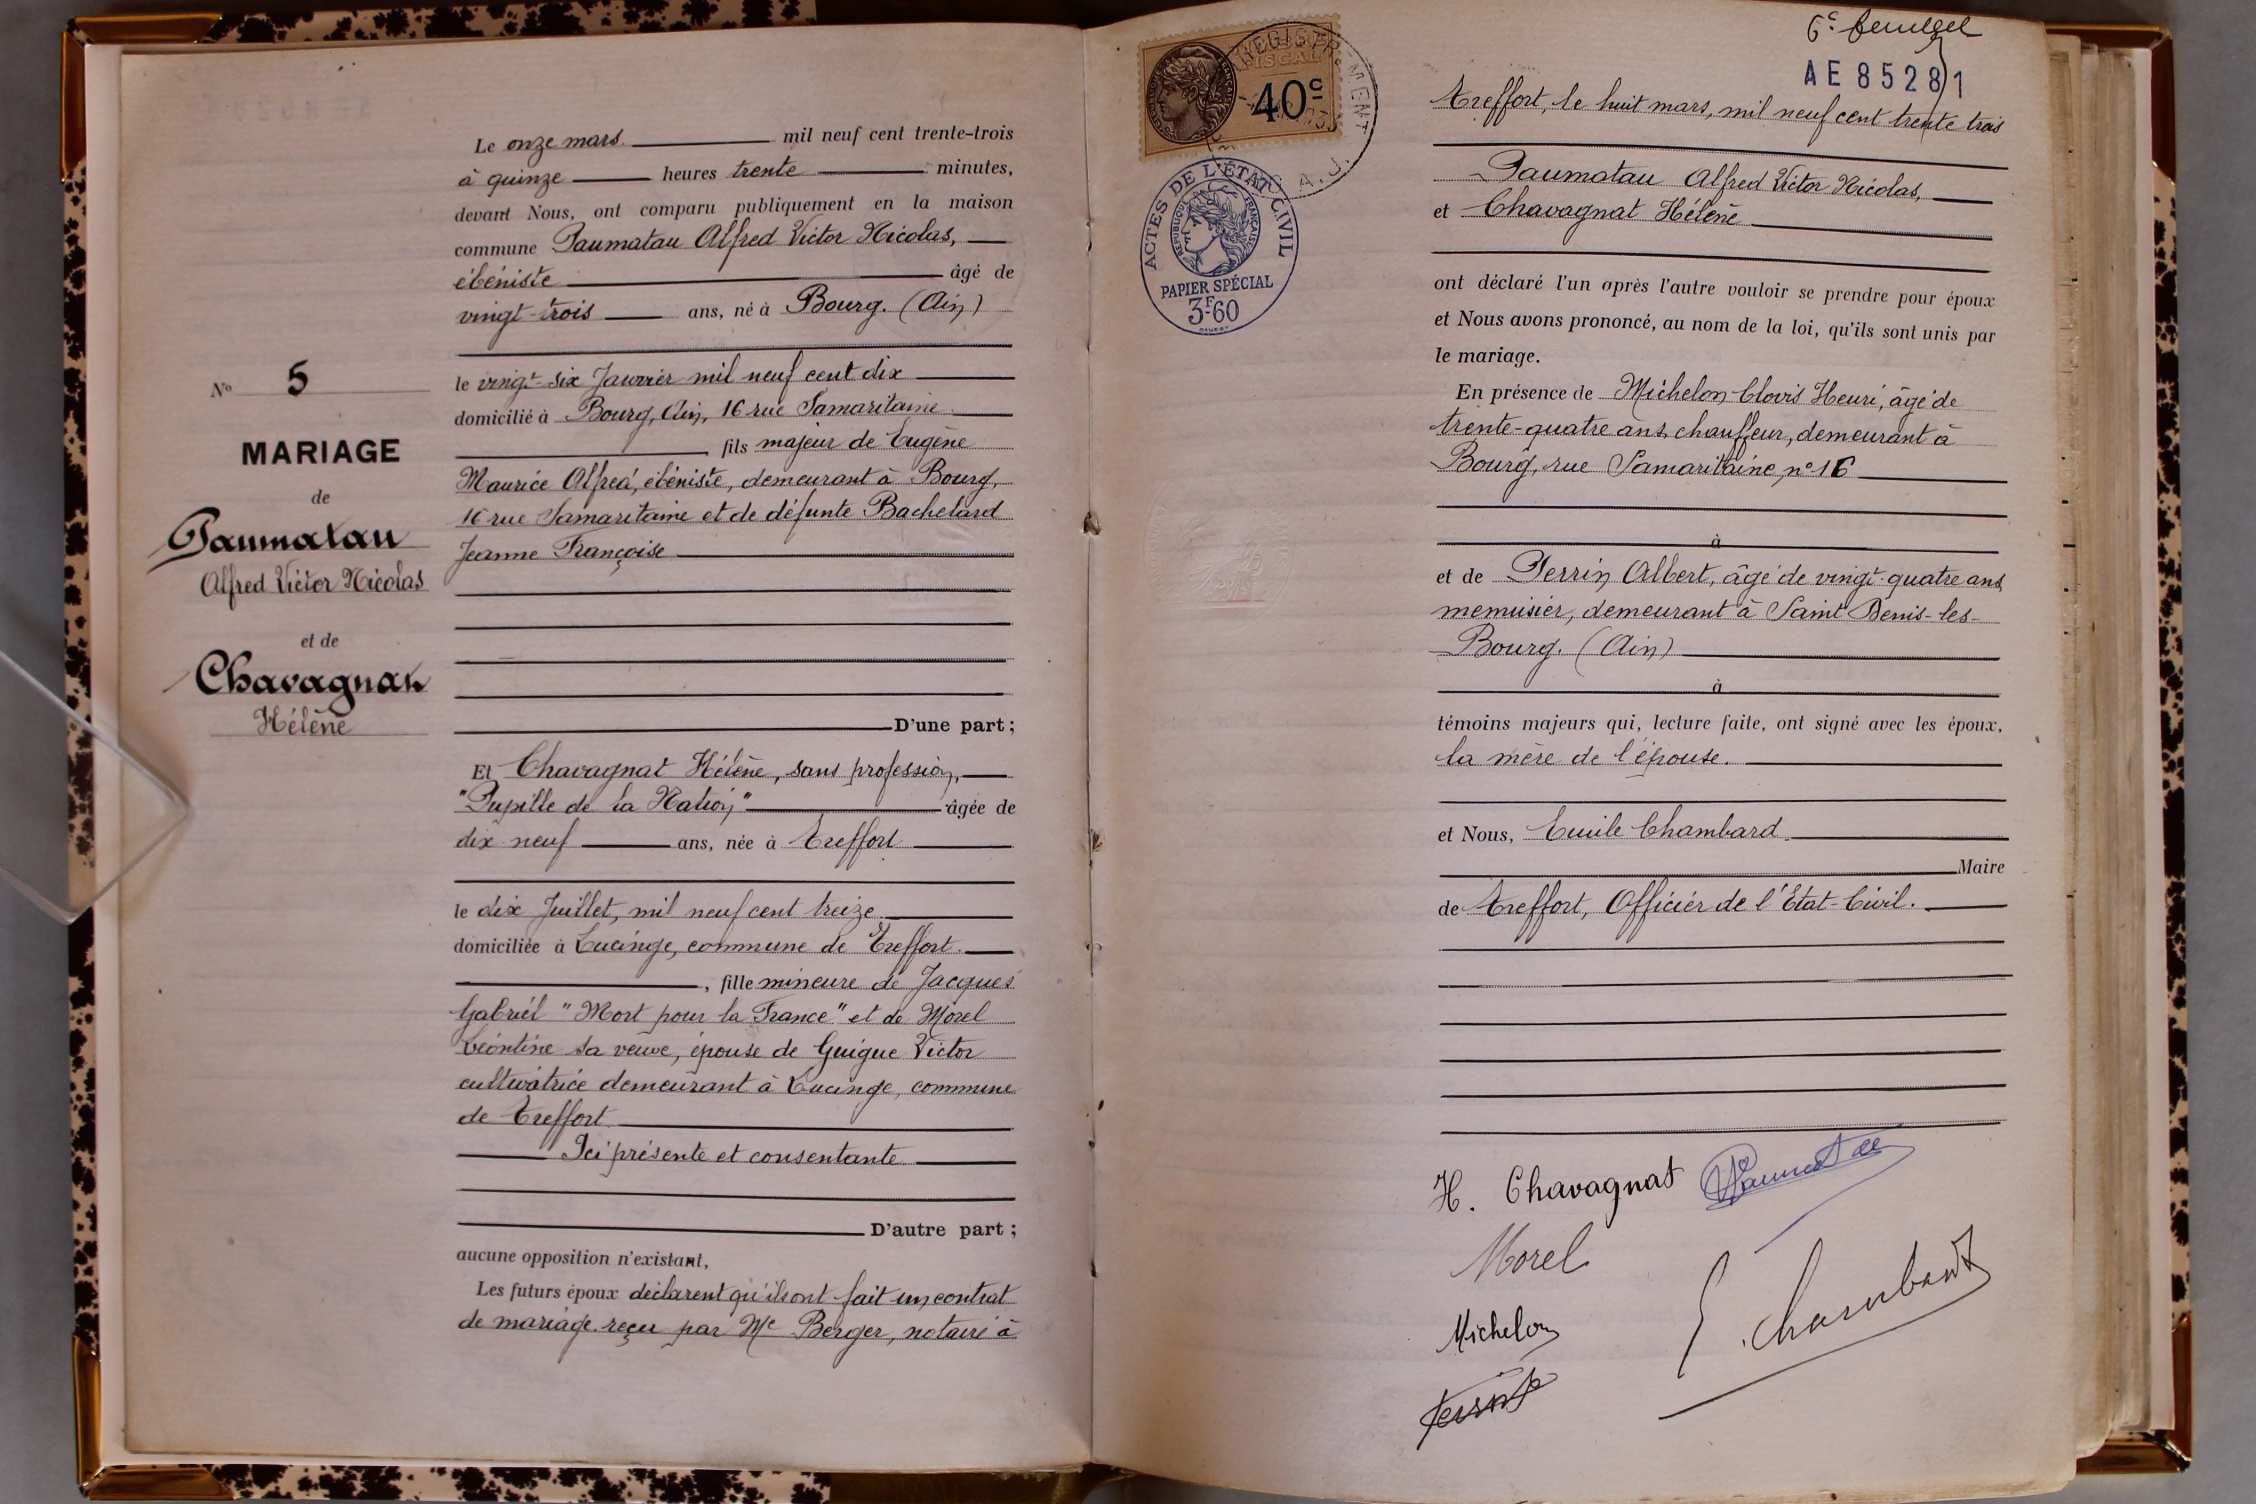 Le onze mars mil neuf cent trente-trois
à quinze heures trente minutes,
devant Nous, ont comparu publiquement en la maison
commune Paumatau Alfred Victor Nicolas,
ébéniste âgé de
vingt-trois ans, né à Bourg. (Ain)
le vingt-six Janvier mil neuf cent dix
domicilié à Bourg, Ain, 16 rue Samaritaine
fils majeur de Eugène
Maurice Alfred, ébéniste, demeurant à Bourg,
16 rue Samaritaine et de défunte Bachelard
Jeanne Françoise
D'une part ;
No 5
MARIAGE
de
Paumatau
Alfred Victor Nicolas
et de
Chavagnat
Hélène
Et Chavagnat Hélène, sans profession,
"Pupille de la Nation" âgée de
dix neuf ans, née à Treffort
le dix Juillet, mil neuf cent treize
domiciliée à Lucinge, commune de Treffort.
, fille mineure de Jacques
Gabriel "Mort pour la France" et de Morel
Léontine sa veuve, épouse de Guigue Victor
cultivatrice demeurant à Lucinge, commune
de Treffort
Ici présente et consentante
D'autre part ;
aucune opposition n'existant,
Les futurs époux déclarent qu'ils ont fait un contrat
de mariage reçu par Me Berger, notaire à
40c
ACTES DE L'ÉTAT CIVIL
RÉPUBLIQUE FRANÇAISE
PAPIER SPÉCIAL
3F.60
AE 85281
Treffort, le huit mars, mil neuf cent trente trois
Paumatau Alfred Victor Nicolas,
et Chavagnat Hélène
ont déclaré l'un après l'autre vouloir se prendre pour époux
et Nous avons prononcé, au nom de la loi, qu'ils sont unis par
le mariage.
En présence de Michelon Clovis Henri, âgé de
trente-quatre ans, chauffeur, demeurant à
Bourg, rue Samaritaine, no 16
à
et de Perrin Albert, âgé de vingt-quatre ans
menuisier, demeurant à Saint Denis-les-
Bourg. (Ain)
à
témoins majeurs qui, lecture faite, ont signé avec les époux,
la mère de l'épouse.
et Nous, Emile Chambard
Maire
de Treffort, Officier de l'Etat-Civil.
H. Chavagnat
Morel
E. Chambard
Michelon